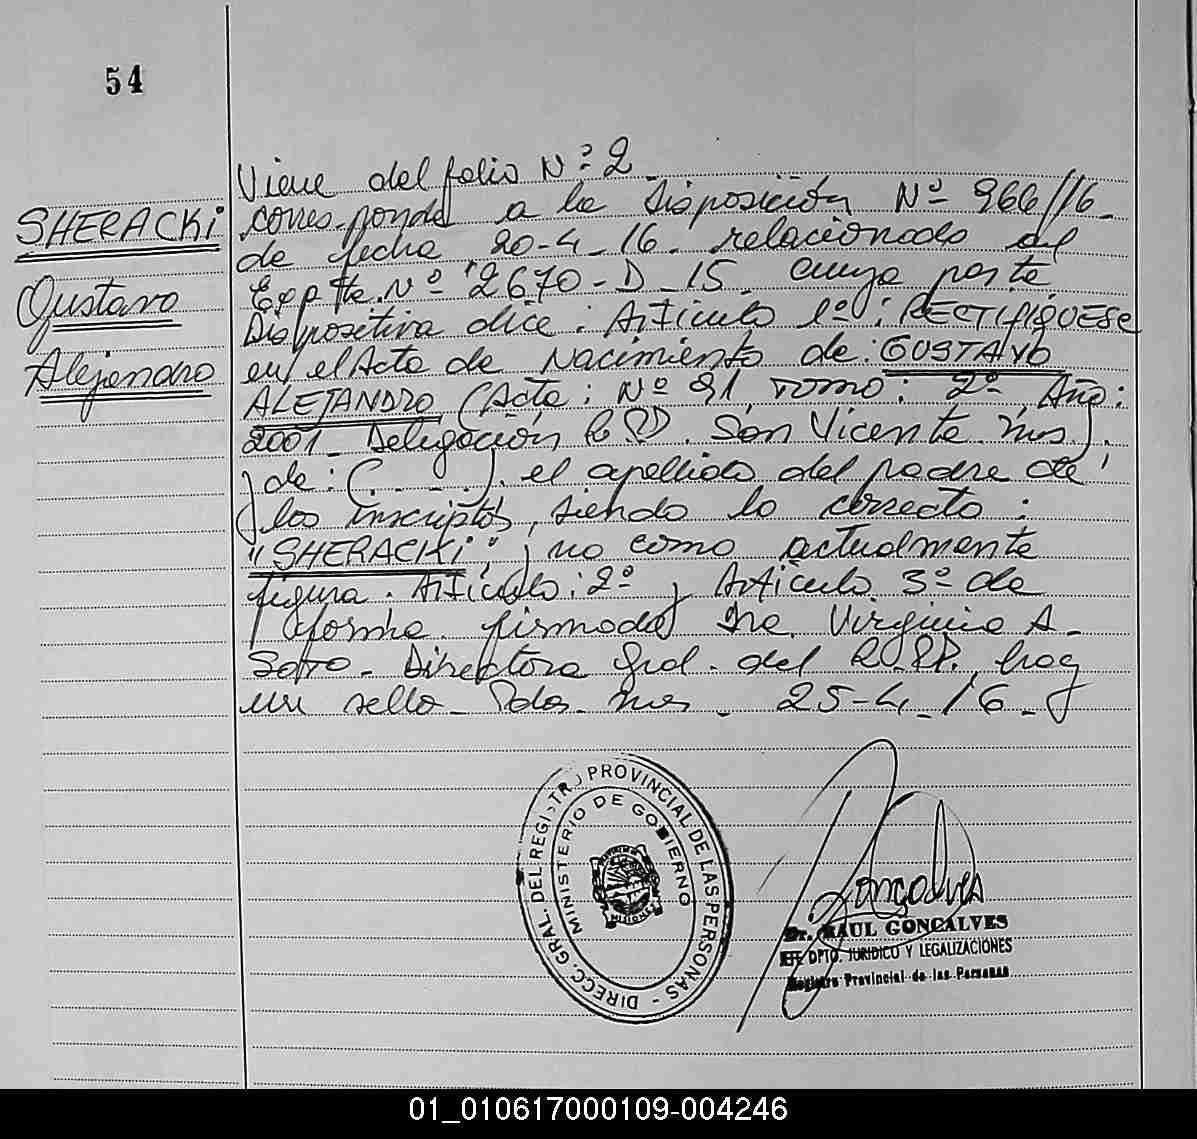 54
SHERACKI
Gustavo
Alejandro
Viene del folio Nº 2.
corresponde a la Disposición Nº 966/16.
de fecha 20-4-16. relacionado al
Expte. Nº 2670-D-15. cuya parte
Dispositiva dice: Artículo 1º: RECTIFIQUESE
en el Acta de Nacimiento de: GUSTAVO
ALEJANDRO (Acta: Nº 91 Tomo: 2º Año:
2001. Delegación San Vicente Mns.).
y de: (. . . . .). el apellido del padre de
los inscriptos, siendo lo correcto:
"SHERACKI", y no como actualmente
figura. Artículo: 2º y Artículo 3º de
forma. firmado Virginia A.
Soto. Directora Gral. del R.P.P. hay
un sello. Pdas. Mns. 25-4-16.
DIRECC. GRAL. DEL REGISTRO PROVINCIAL DE LAS PERSONAS
MINISTERIO DE GOBIERNO
MISIONES
Goncalves
Dr. RAUL GONCALVES
JEFE DPTO. JURIDICO Y LEGALIZACIONES
Registro Provincial de las Personas
01_010617000109-004246